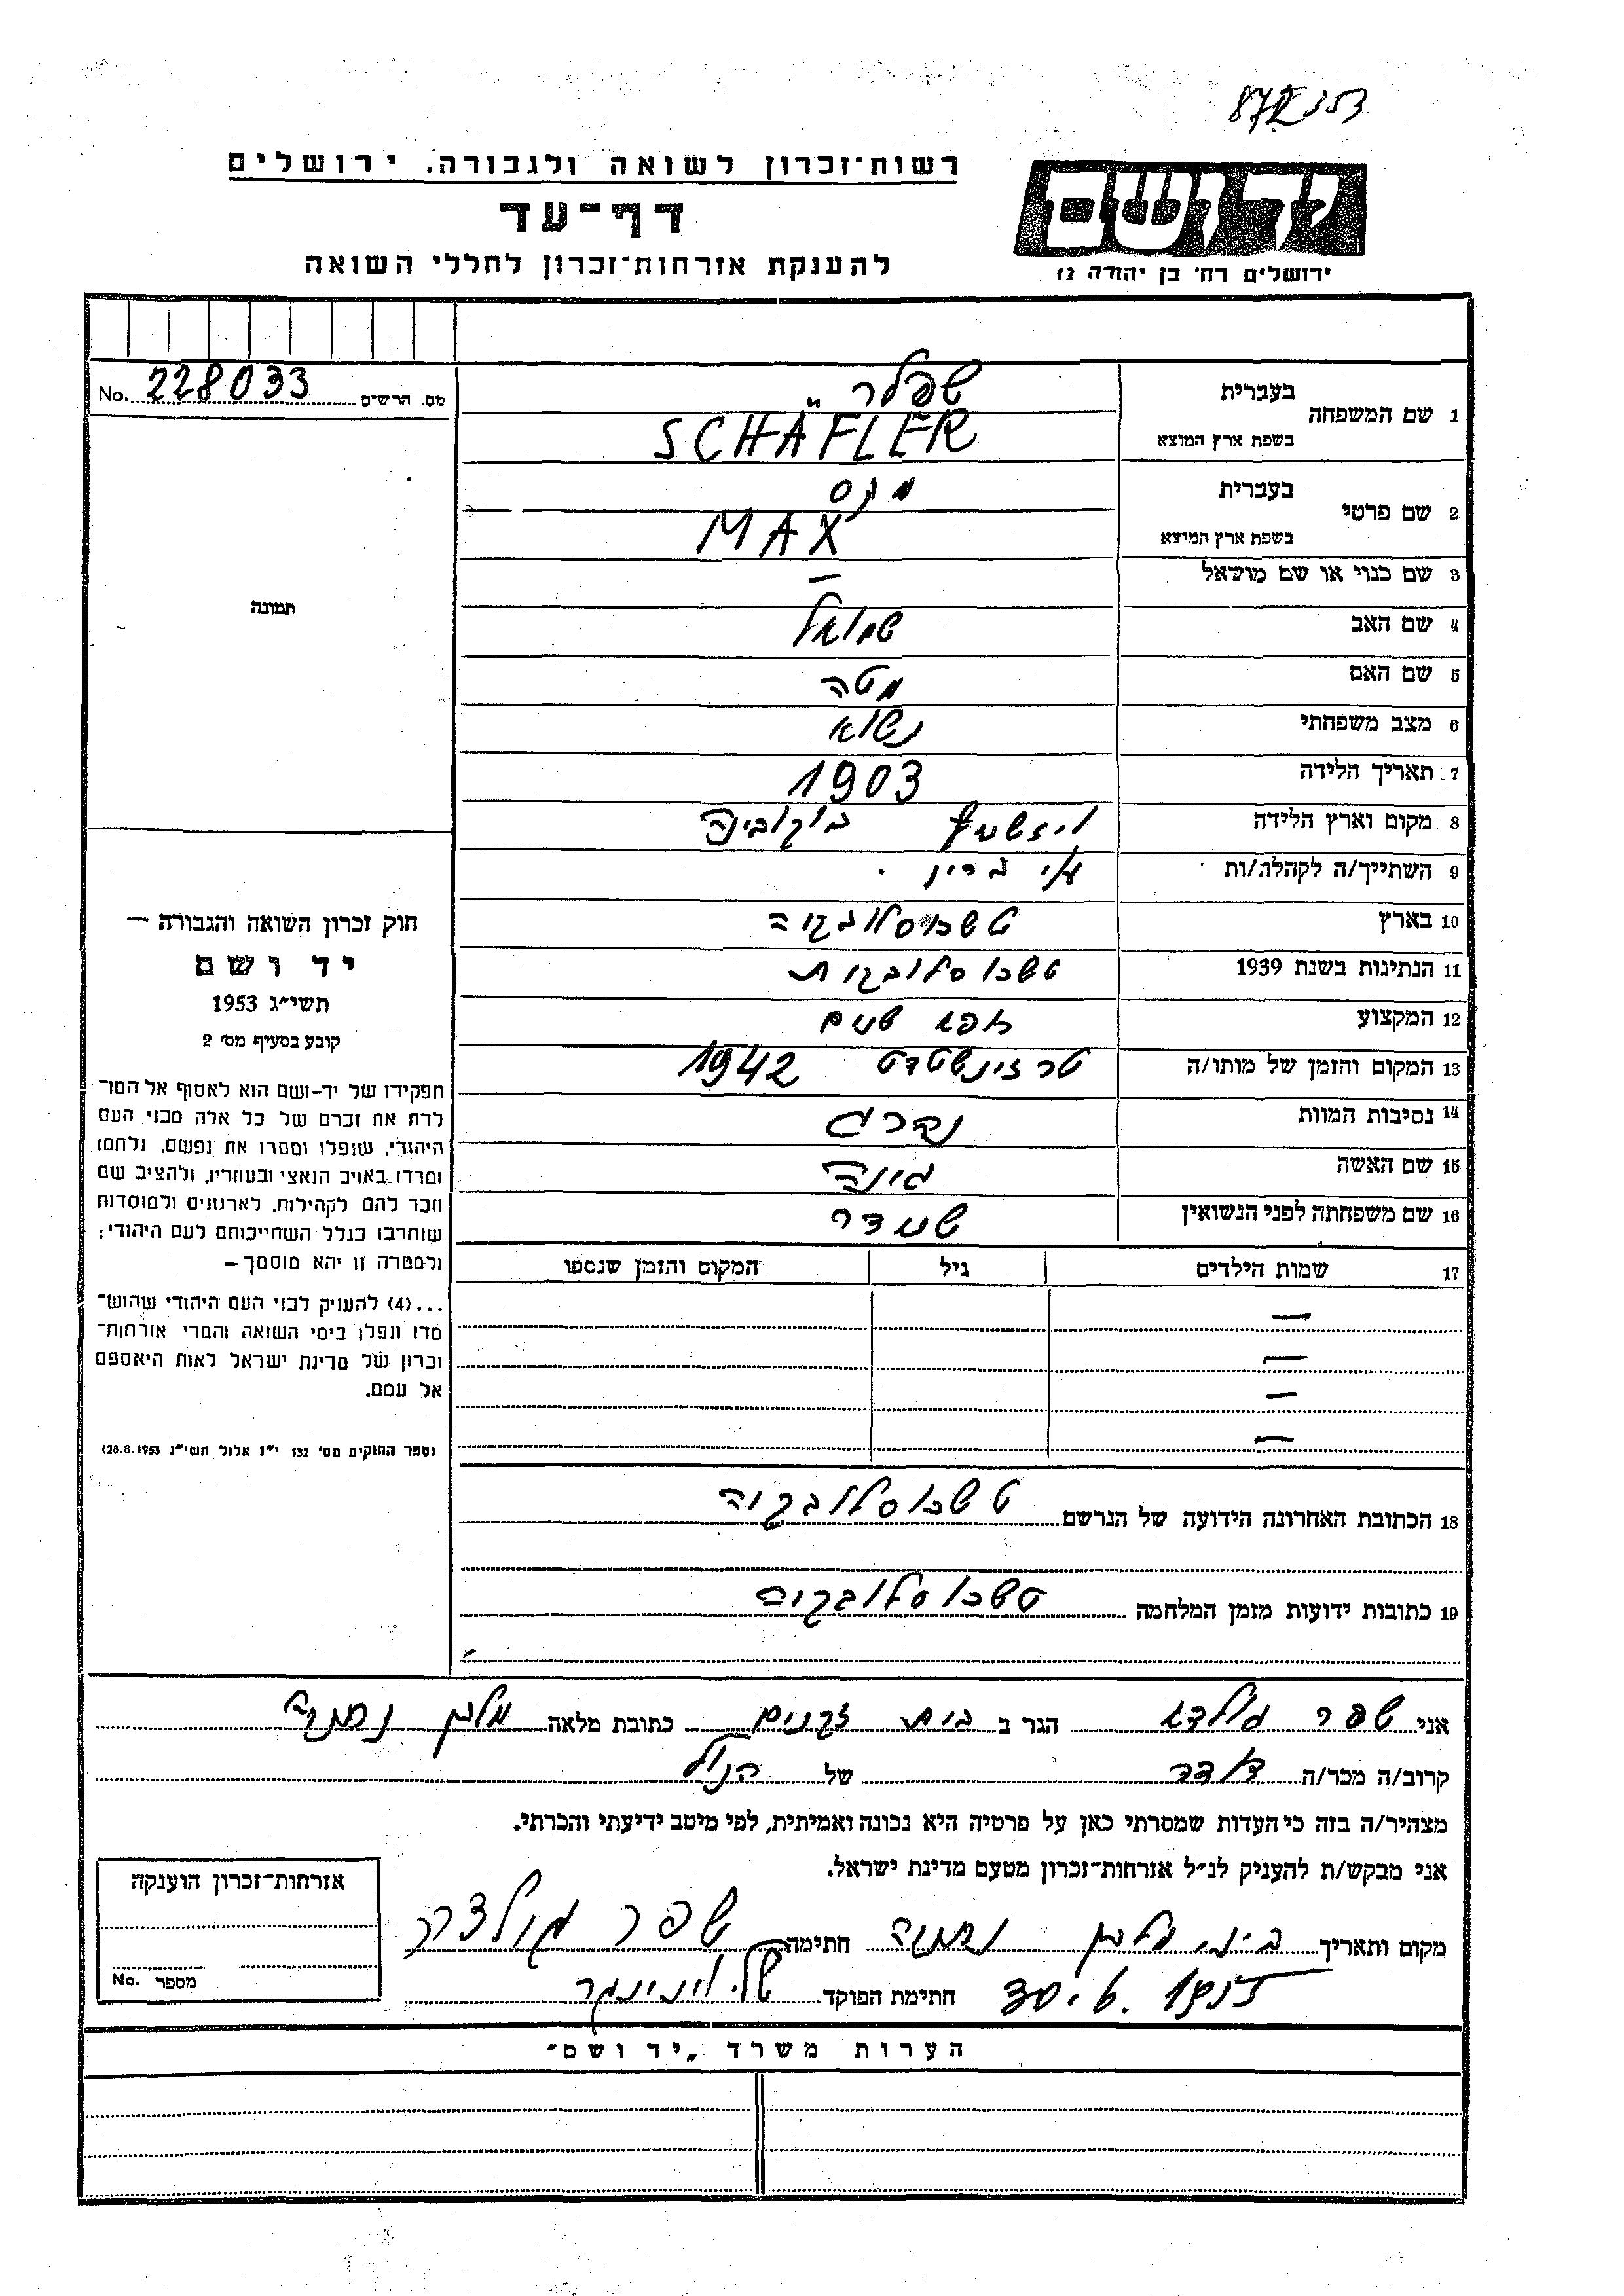 רשות־זכרון לשואה ולגבורה. ירושלים
דף־עד
להענקת אזרחות־זכרון לחללי השואה
יד ושם
ירושלים רח׳ בן יהודה 12
מס. הרשים No. 228033
תמונה
1 שם המשפחה
בעברית שפלר
בשפת ארץ המוצא SCHÄFLER
2 שם פרטי
בעברית מקס
בשפת ארץ המוצא MAX
3 שם כנוי או שם מושאל –
4 שם האב שמואל
5 שם האם מטה
6 מצב משפחתי נשוא
7 תאריך הלידה 1903
8 מקום וארץ הלידה ויזשניץ בוקובינה
9 השתייך/ה לקהלה/ות
10 בארץ טשכוסלובקיה
11 הנתינות בשנת 1939 טשכוסלובקית
12 המקצוע רופא שנים
13 המקום והזמן של מותו/ה טרזינשטדט 1942
14 נסיבות המוות נהרג
15 שם האשה גינה
16 שם משפחתה לפני הנשואין שנדר
17 שמות הילדים גיל המקום והזמן שנספו
–
–
–
–
18 הכתובת האחרונה הידועה של הנרשם טשכוסלובקיה
19 כתובות ידועות מזמן המלחמה טשכוסלובקיה
חוק זכרון השואה והגבורה —
יד ושם
תשי״ג 1953
קובע בסעיף מס׳ 2
תפקידו של יד-ושם הוא לאסוף אל המו־
לדת את זכרם של כל אלה מבני העם
היהודי, שנפלו ומסרו את נפשם, נלחמו
ומרדו באויב הנאצי ובעוזריו, ולהציב שם
וזכר להם לקהילות, לארגונים ולמוסדות
שנחרבו בגלל השתייכותם לעם היהודי;
ולמטרה זו יהא מוסמך —
...(4) להעניק לבני העם היהודי שהוש־
מדו ונפלו בימי השואה והמרי אזרחות־
זכרון של מדינת ישראל לאות היאספם
אל עמם.
(ספר החוקים מס׳ 132 י״ז אלול תשי״ג 28.8.1953)
אני שפר גולדה הגר ב בית זקנים כתובת מלאה מלבן נתניה
קרוב/ה מכר/ה של הנ״ל
מצהיר/ה בזה כי העדות שמסרתי כאן על פרטיה היא נכונה ואמיתית, לפי מיטב ידיעתי והכרתי.
אני מבקש/ת להעניק לנ״ל אזרחות־זכרון מטעם מדינת ישראל.
מקום ותאריך בית מלבן נתניה חתימה שפר גולדה
חתימת הפוקד
אזרחות־זכרון הוענקה
מספר No.
הערות משרד „יד ושם״